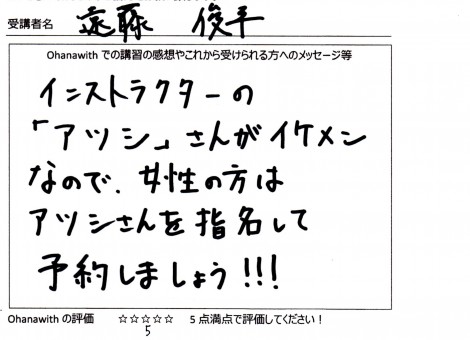 受講者名 遠藤 俊平
Ohanawith での講習の感想やこれから受けられる方へのメッセージ等
インストラクターの
「アツシ」さんがイケメン
なので、女性の方は
アツシさんを指名して
予約しましょう!!!
Ohanawith の評価 ☆☆☆☆☆ 5 点満点で評価してください！
5